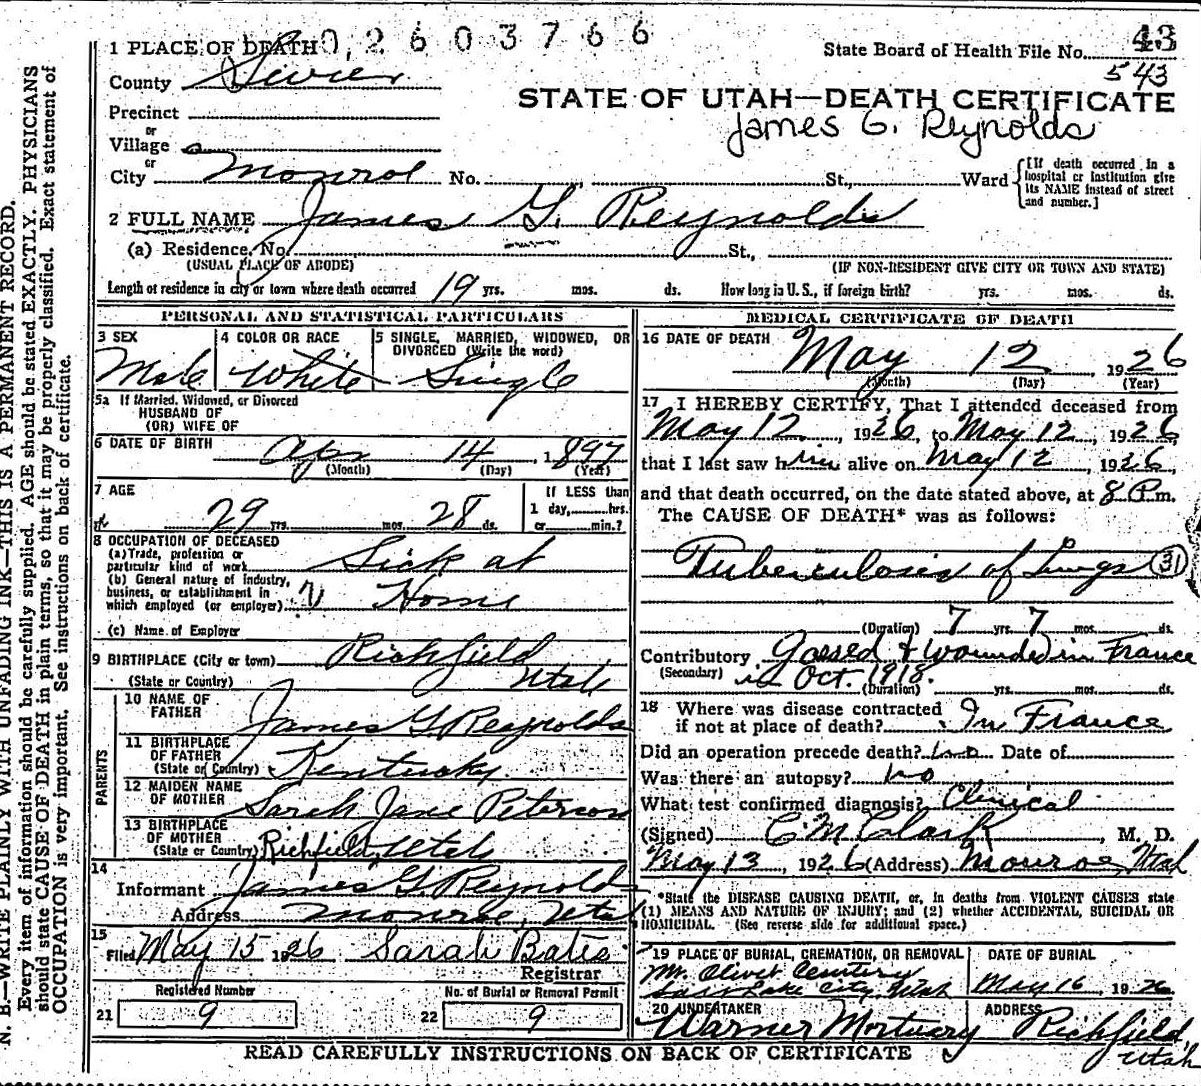 N. B.—WRITE PLAINLY WITH UNFADING INK—THIS IS A PERMANENT RECORD.
Every item of information should be carefully supplied. AGE should be stated EXACTLY. PHYSICIANS
should state CAUSE OF DEATH in plain terms, so that it may be properly classified. Exact statement of
OCCUPATION is very important. See instructions on back of certificate.
0,2603766
43
State Board of Health File No.
543
1 PLACE OF DEATH
County Sevier
Precinct
or
Village
or
City Monroe No. St., Ward
STATE OF UTAH—DEATH CERTIFICATE
James G. Reynolds
[If death occurred in a
hospital or institution give
its NAME instead of street
and number.]
2 FULL NAME James G. Reynolds
(a) Residence. No. St.,
(USUAL PLACE OF ABODE) (IF NON-RESIDENT GIVE CITY OR TOWN AND STATE)
Length of residence in city or town where death occurred 19 yrs. mos. ds. How long in U. S., if foreign birth? yrs. mos. ds.
PERSONAL AND STATISTICAL PARTICULARS
3 SEX Male
4 COLOR OR RACE White
5 SINGLE, MARRIED, WIDOWED, OR
DIVORCED (Write the word)
Single
5a If Married, Widowed, or Divorced
HUSBAND OF
(OR) WIFE OF
6 DATE OF BIRTH Apr 14 1897
(Month) (Day) (Year)
7 AGE
29 yrs. mos. 28 ds.
If LESS than
1 day,......hrs.
or......min.?
8 OCCUPATION OF DECEASED
(a) Trade, profession or
particular kind of work Sick at
(b) General nature of industry,
business, or establishment in
which employed (or employer) Home
(c) Name of Employer
9 BIRTHPLACE (City or town) Richfield
(State or Country) Utah
PARENTS
10 NAME OF
FATHER James G Reynolds
11 BIRTHPLACE
OF FATHER
(State or Country) Kentucky
12 MAIDEN NAME
OF MOTHER Sarah Jane Peterson
13 BIRTHPLACE
OF MOTHER
(State or Country) Richfield, Utah
14
Informant James G. Reynolds
Address Monroe, Utah
15
Filed May 15 1926 Sarah Bates
Registrar
Registered Number
21 9
No. of Burial or Removal Permit
22 9
MEDICAL CERTIFICATE OF DEATH
16 DATE OF DEATH May 12 1926
(Month) (Day) (Year)
17 I HEREBY CERTIFY, That I attended deceased from
May 12, 1926, to May 12, 1926,
that I last saw him alive on May 12, 1926,
and that death occurred, on the date stated above, at 8 P.m.
The CAUSE OF DEATH* was as follows:
Tuberculosis of Lungs 31
(Duration) 7 yrs. 7 mos. ds.
Contributory Gassed & wounded in France
(Secondary) in Oct. 1918.
(Duration) yrs. mos. ds.
18 Where was disease contracted
if not at place of death? In France
Did an operation precede death? no Date of
Was there an autopsy? no
What test confirmed diagnosis? Clinical
(Signed) C M Clark, M. D.
May 13, 1926 (Address) Monroe, Utah
*State the DISEASE CAUSING DEATH, or, in deaths from VIOLENT CAUSES state
(1) MEANS AND NATURE OF INJURY; and (2) whether ACCIDENTAL, SUICIDAL OR
HOMICIDAL. (See reverse side for additional space.)
19 PLACE OF BURIAL, CREMATION, OR REMOVAL
Mt. Olivet Cemetery
Salt Lake City, Utah
DATE OF BURIAL
May 16 1926
20 UNDERTAKER
Warner Mortuary
ADDRESS
Richfield,
Utah
READ CAREFULLY INSTRUCTIONS ON BACK OF CERTIFICATE